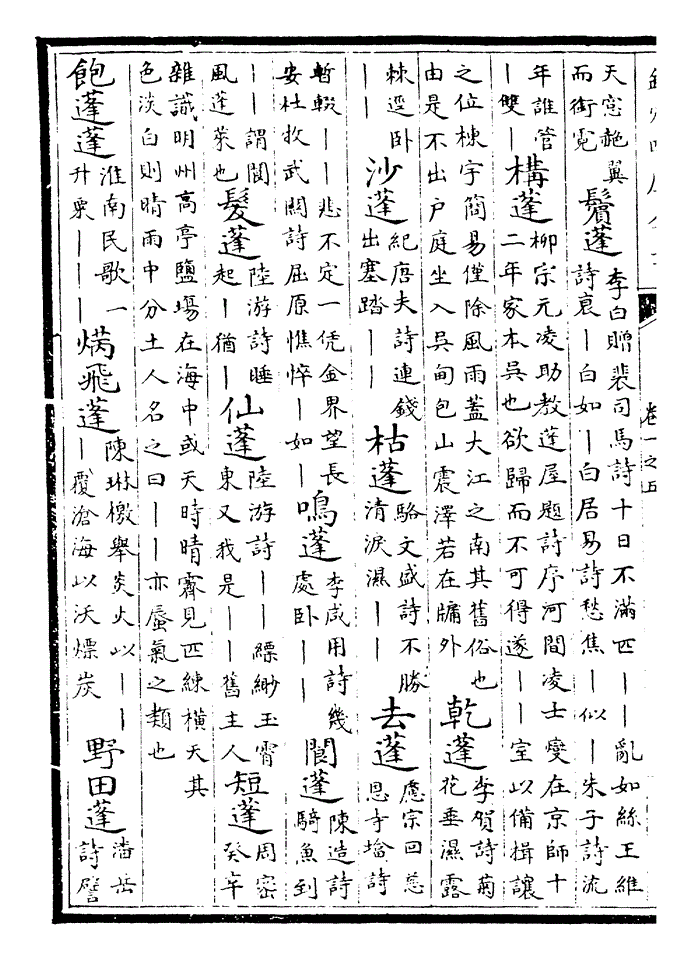 卷一之五
天窓赩翼而銜霓 鬢蓬 李白贈裴司馬詩十日不滿匹――亂如絲王維詩衰―白如―白居易詩愁焦―似―朱子詩流
年誰管―雙― 構蓬 柳宗元凌助教蓬屋題詩序河間凌士燮在京師十二年家本吳也欲歸而不可得遂――室以備揖讓
之位棟宇簡易僅除風雨蓋大江之南其舊俗也由是不出户庭坐入吳甸包山震澤若在牖外 乾蓬 李賀詩菊花垂濕露
棘逕卧―― 沙蓬 紀唐夫詩連錢出塞踏―― 枯蓬 駱文盛詩不勝清淚濕―― 去蓬 應宗回慈恩寺塔詩
暫輟――悲不定一凭金界望長安杜牧武關詩屈原憔悴―如― 鳴蓬 李咸用詩幾處卧―― 閬蓬 陳造詩騎魚到
――謂閬風蓬萊也 髮蓬 陸游詩睡起―猶― 仙蓬 陸游詩――縹緲玉霄東又我是――舊主人 短蓬 周密癸辛
雜識明州高亭鹽塲在海中或天時晴霽見匹練横天其色淡白則晴雨中分土人名之曰――亦蜃氣之類也
飽蓬蓬 淮南民歌一升粟――― 焫飛蓬 陳琳檄舉炎火以―――覆滄海以沃熛炭 野田蓬 潘岳詩譬